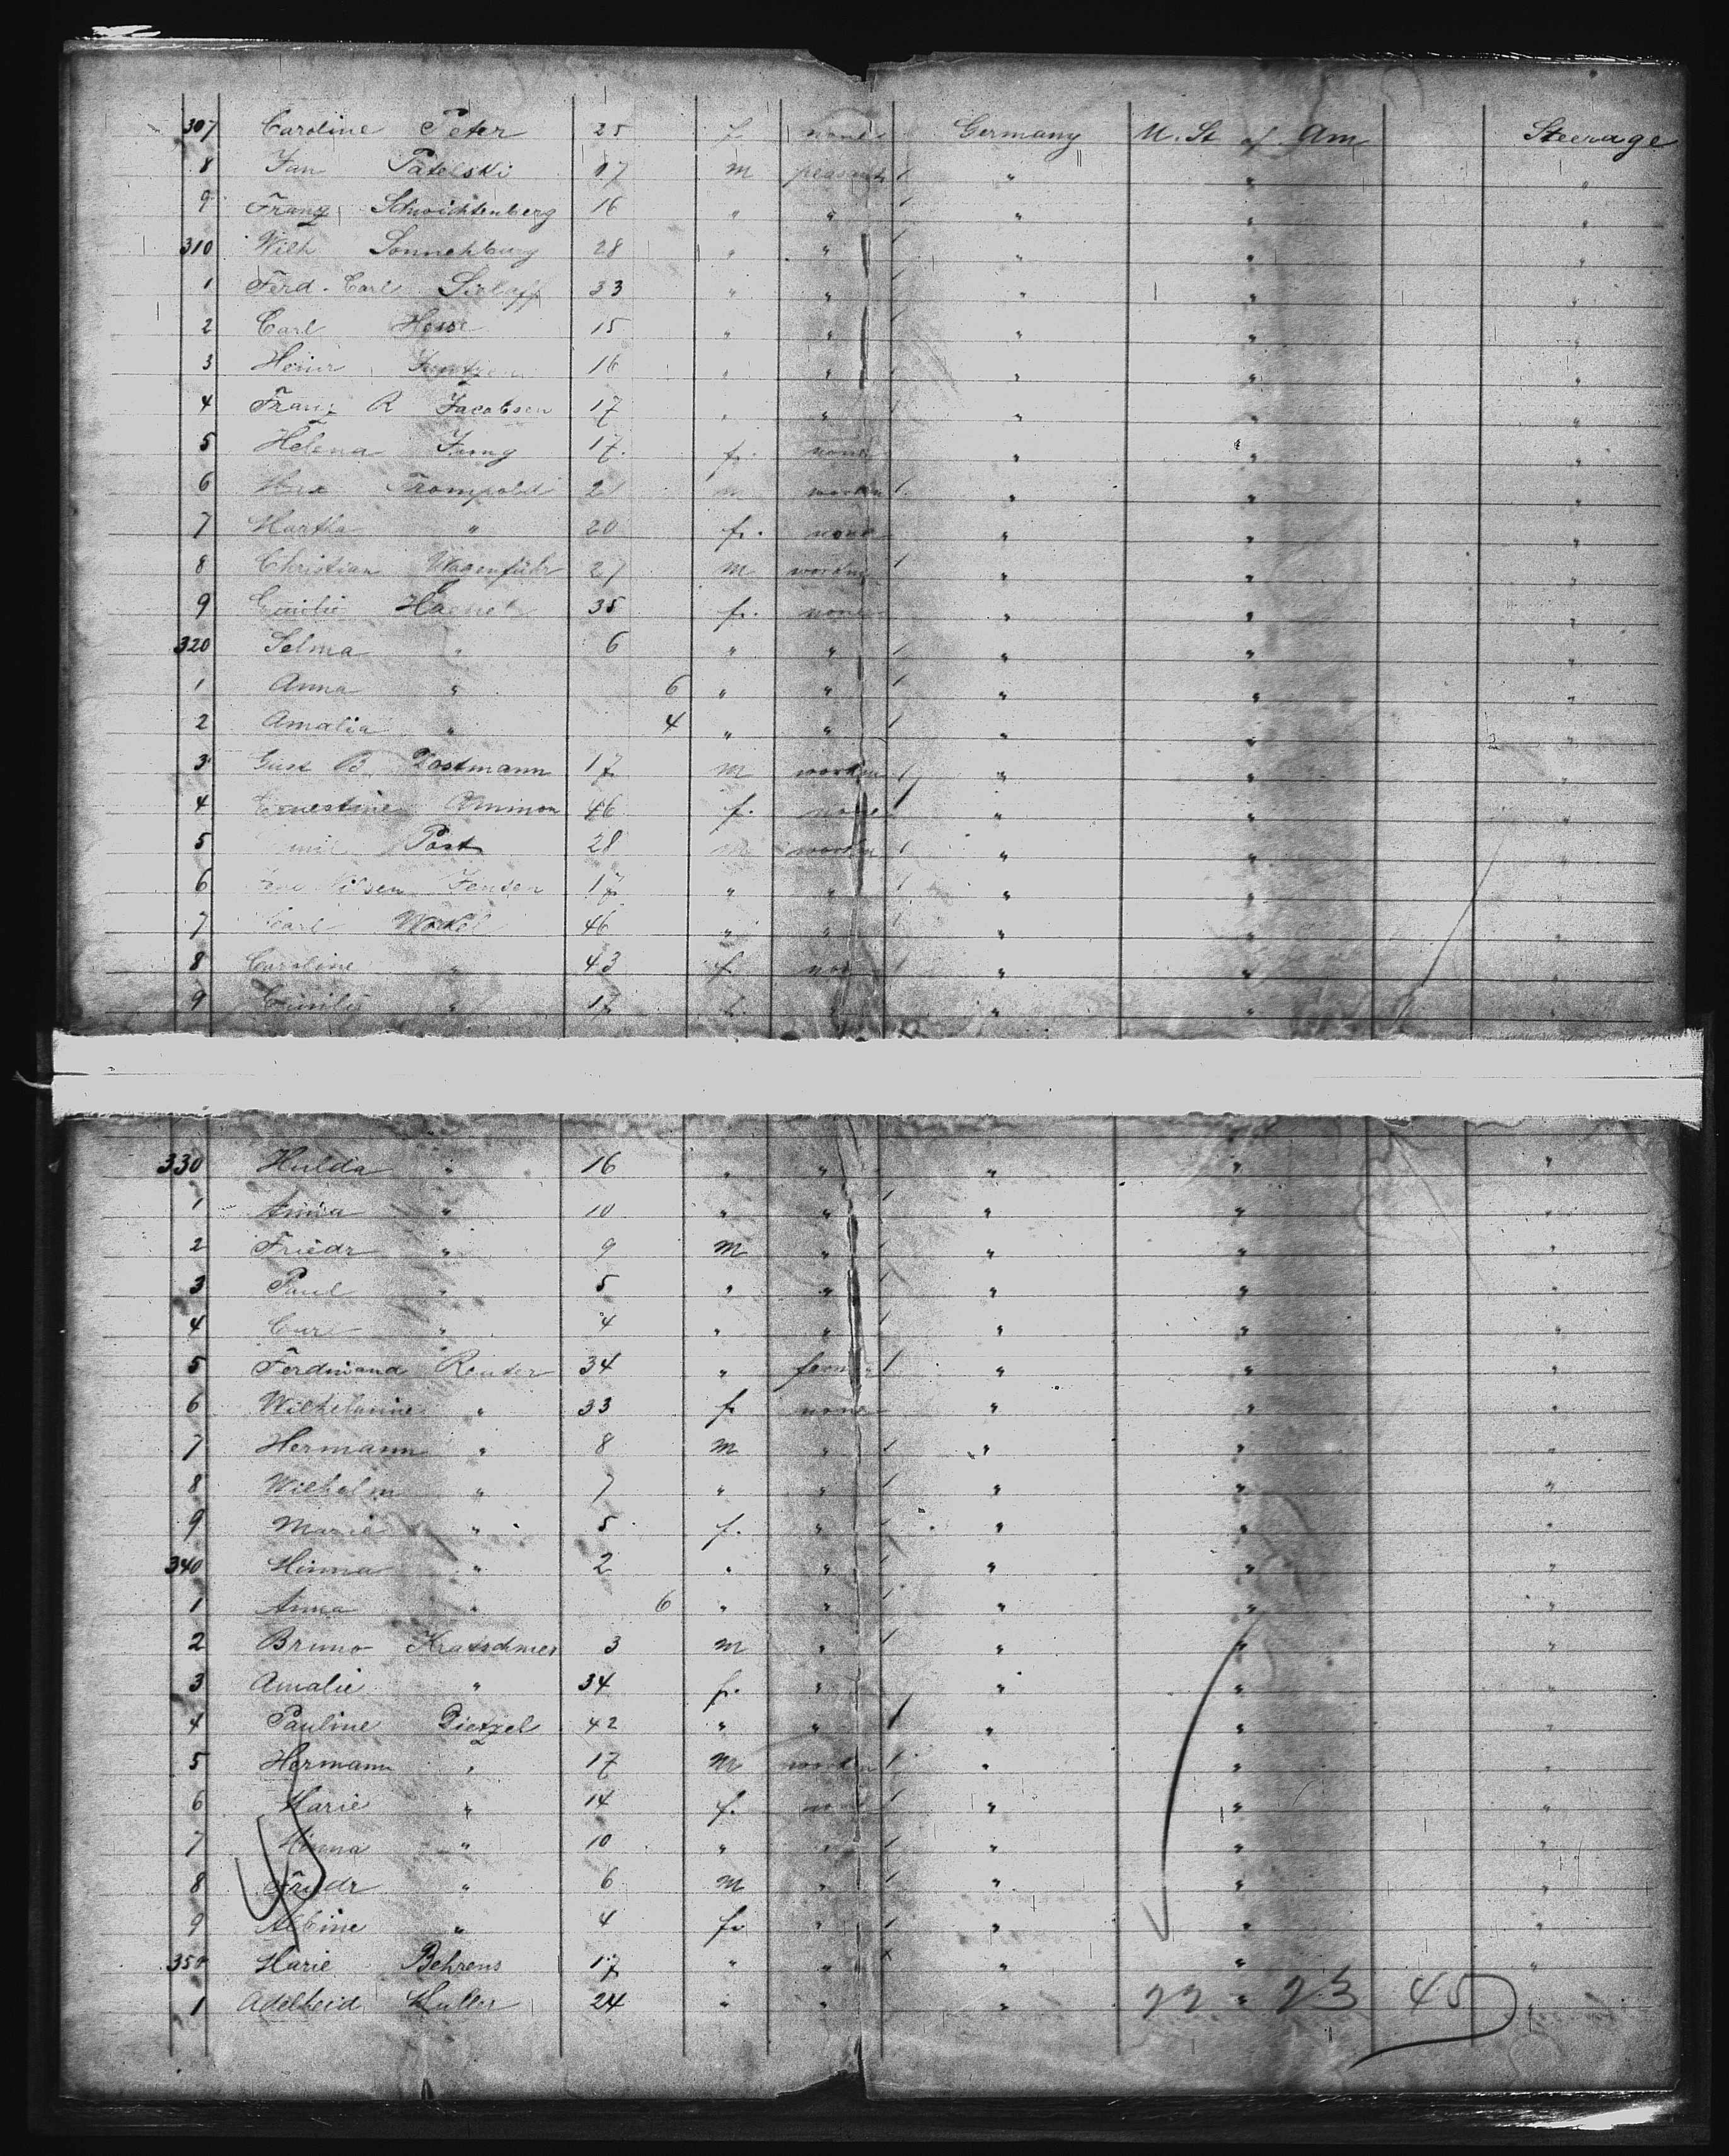 307 Caroline Peter 25 f none Germany U. St. of Am Steerage
8 Jan Patelski 17 m peasant 1 " " "
9 Franz Schwichtenberg 16 " " 1 " " "
310 Wilh Sonnenburg 28 " " 1 " " "
1 Ferd. Carl 33 " " 1 " " "
2 Carl 15 " " 1 " " "
3 Heinr 16 " " 1 " " "
4 Franz R Jacobsen 17 " " 1 " " "
5 Helena Jung 17 f. none " " "
6 Max Trompold 21 m workm 1 " " "
7 Martha " 20 f. none " " "
8 Christian Wagenführ 27 m workm 1 " " "
9 Emilie 35 f. none " " "
320 Selma " 6 " " 1 " " "
1 Anna " 6 " " 1 " " "
2 Amalia " 4 " " 1 " " "
3 Gust B. 17 m workm 1 " " "
4 Ernestine Ammon 46 f. none 1 " " "
5 Post 28 m workm 1 " " "
6 Nilsen Jensen 17 " " 1 " " "
7 Carl 46 " " 1 " " "
8 Caroline " 43 f. non 1 " " "
9 Emily " 17 f. " " " "
330 Hulda " 16 " " " " "
1 Anna " 10 " " 1 " " "
2 Friedr " 9 m " 1 " " "
3 Paul " 5 " " 1 " " "
4 Carl " 4 " " 1 " " "
5 Ferdinand Reuter 34 " farm 1 " " "
6 Wilhelmine " 33 f. none " " "
7 Hermann " 8 m " 1 " " "
8 Wilhelm " 7 " " 1 " " "
9 Marie " 5 f. " 1 " " "
340 Minna " 2 " " 1 " " "
1 Anna " 6 " " 1 " " "
2 Bruno Kratschmer 3 m " 1 " " "
3 Amalie " 34 f. " " " "
4 Pauline Dietzel 42 " " 1 " " "
5 Hermann " 17 m workm 1 " " "
6 Marie " 14 f. none 1 " " "
7 Minna " 10 " " 1 " " "
8 Friedr " 6 m " 1 " " "
9 Albine " 4 f. " 1 " " "
350 Marie Behrens 17 " " x " " "
1 Adelheid 24 " " " 22 " 23 45